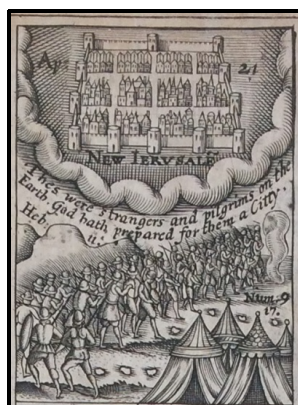 Ap: 21
NEW IERVSALĒ
Thes were strangers and pilgrims on the
Earth. God hath prepared for them a Citty.
Heb. 11.
Num. 9
17.